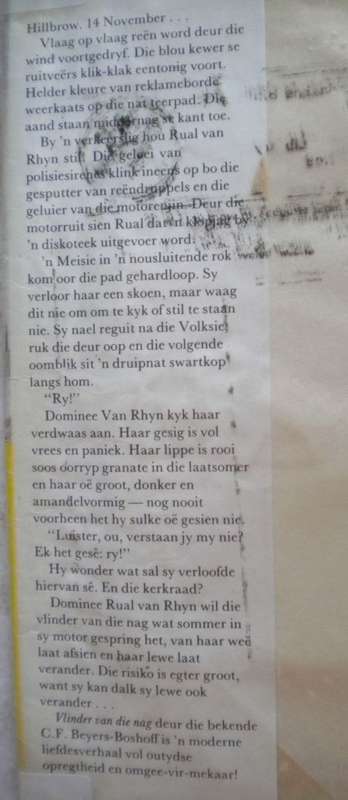 Hillbrow. 14 November . . .
Vlaag op vlaag reën word deur die
wind voortgedryf. Die blou kewer se
ruitveërs klik-klak eentonig voort.
Helder kleure van reklameborde
weerkaats op die nat teerpad. Die
aand staan middernag se kant toe.
By 'n verkeerslig hou Rual van
Rhyn stil. Die gelui van
polisiesirenes klink ineens op bo die
gesputter van reëndruppels en die
geluier van die motorenjin. Deur die
motorruit sien Rual dat 'n klopjag op
'n diskoteek uitgevoer word.
'n Meisie in 'n nousluitende rok
kom oor die pad gehardloop. Sy
verloor haar een skoen, maar waag
dit nie om om te kyk of stil te staan
nie. Sy nael reguit na die Volksie,
ruk die deur oop en die volgende
oomblik sit 'n druipnat swartkop
langs hom.
“Ry!”
Dominee Van Rhyn kyk haar
verdwaas aan. Haar gesig is vol
vrees en paniek. Haar lippe is rooi
soos oorryp granate in die laatsomer
en haar oë groot, donker en
amandelvormig — nog nooit
voorheen het hy sulke oë gesien nie.
“Luister, ou, verstaan jy my nie?
Ek het gesê: ry!”
Hy wonder wat sal sy verloofde
hiervan sê. En die kerkraad?
Dominee Rual van Rhyn wil die
vlinder van die nag wat sommer in
sy motor gespring het, van haar weë
laat afsien en haar lewe laat
verander. Die risiko is egter groot,
want sy kan dalk sy lewe ook
verander . . .
Vlinder van die nag deur die bekende
C.F. Beyers-Boshoff is 'n moderne
liefdesverhaal vol outydse
opregtheid en omgee-vir-mekaar!